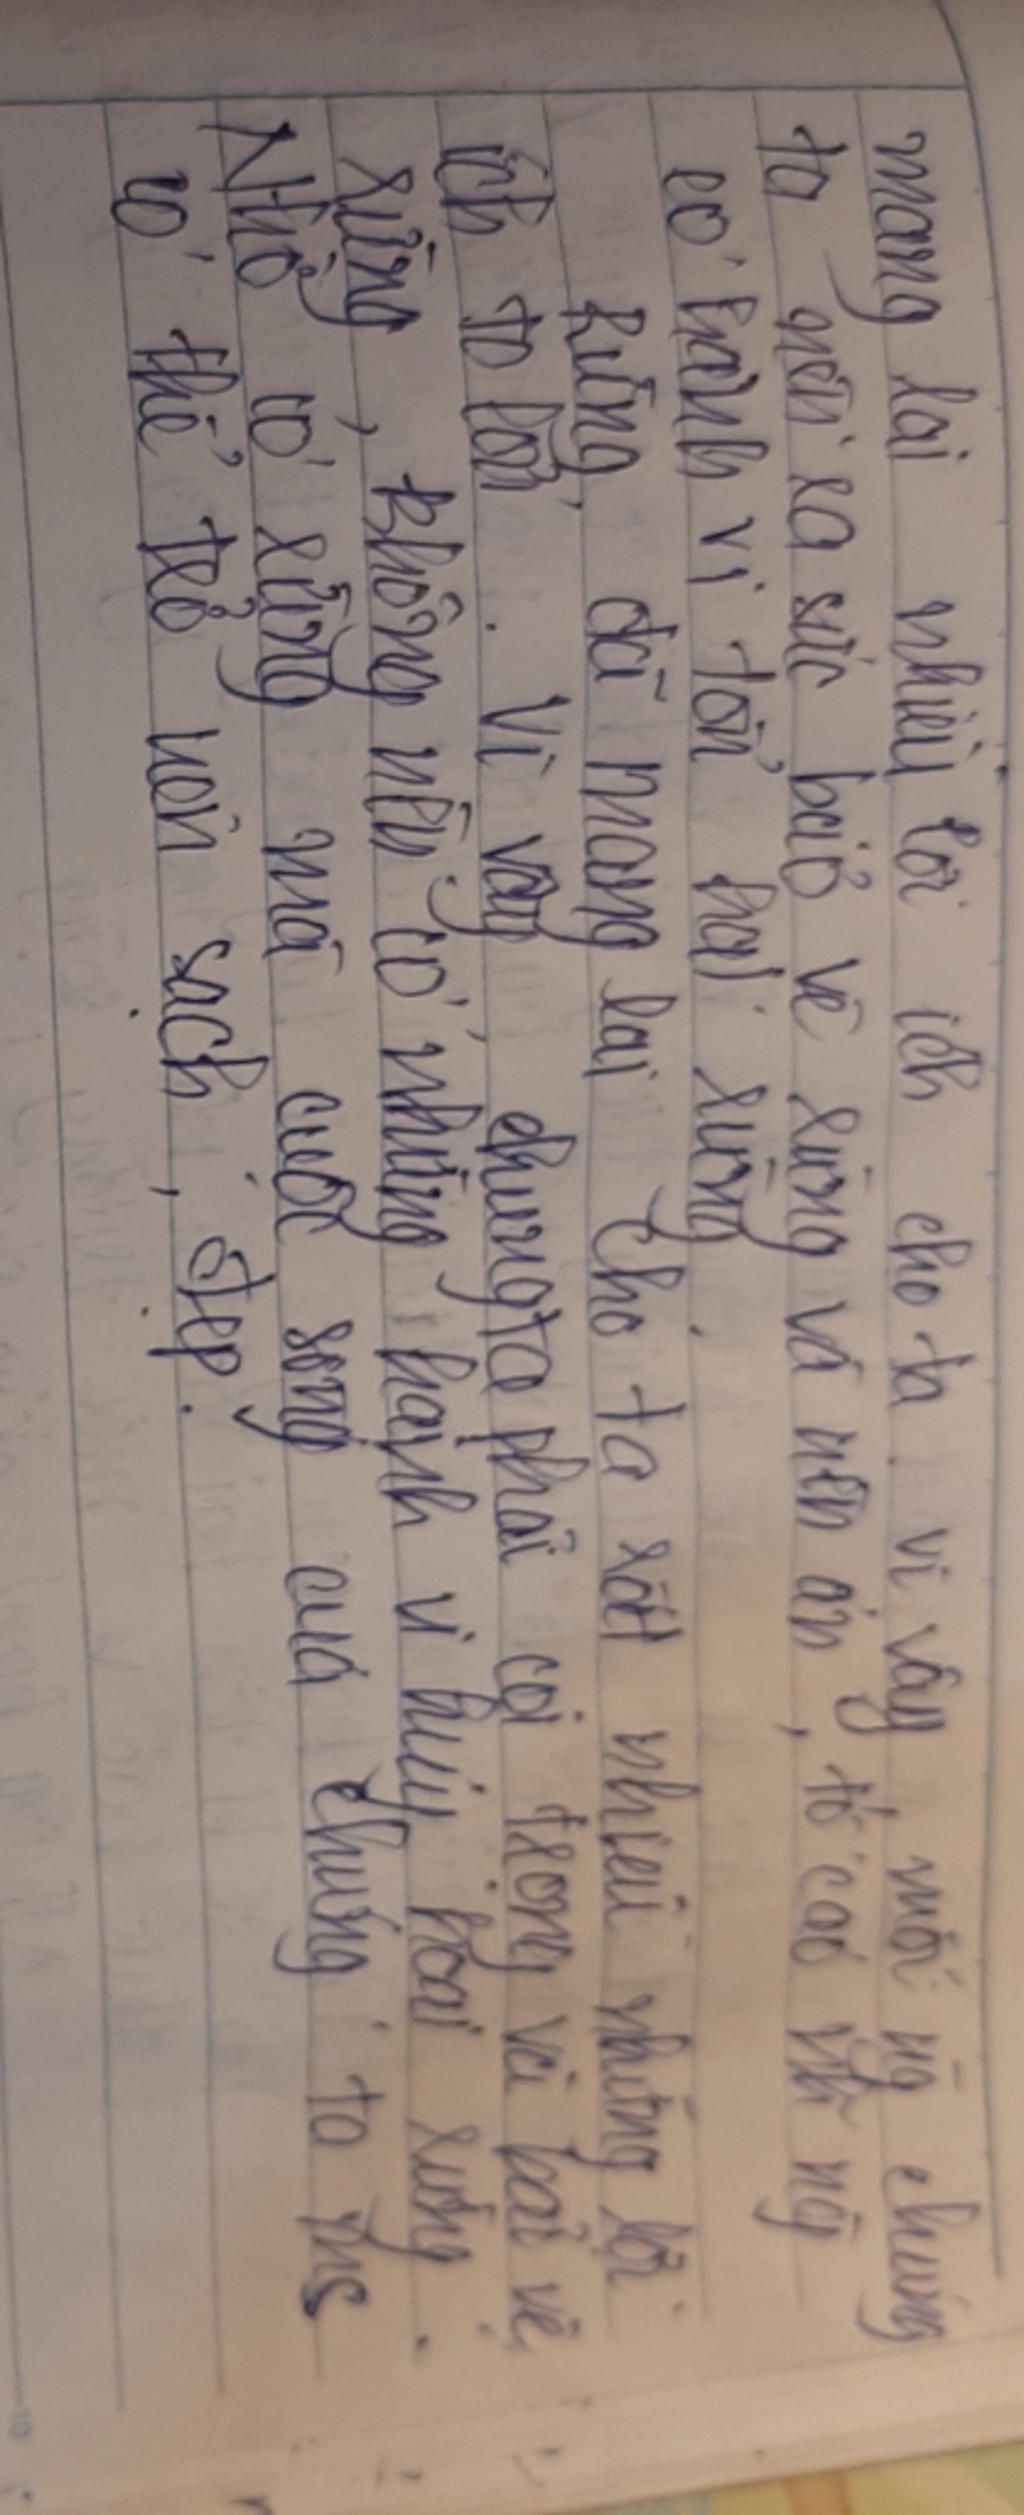 mang lại nhiều lợi ích cho ta. vì vậy, mỗi ng chúng
ta nên ra sức bảo vệ rừng và lên án, tố cáo những ng
có hành vi tổn hại rừng.
Rừng, đã mang lại cho ta rất nhiều những lợi
ích to lớn. Vì vậy chúng ta phải coi trọng và bảo vệ
rừng, không nên có những hành vi hủy hoại rừng.
Nhờ có rừng mà cuộc sống của chúng ta ms
có thể trở nên sạch, đẹp.